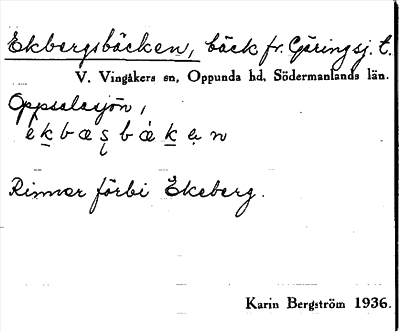 Ekbergsbäcken, bäck fr. Göringsj. t.
V. Vingåkers sn, Oppunda hd, Södermanlands län.
Oppsalasjön,
Rinner förbi Ekeberg.
Karin Bergström 1936.